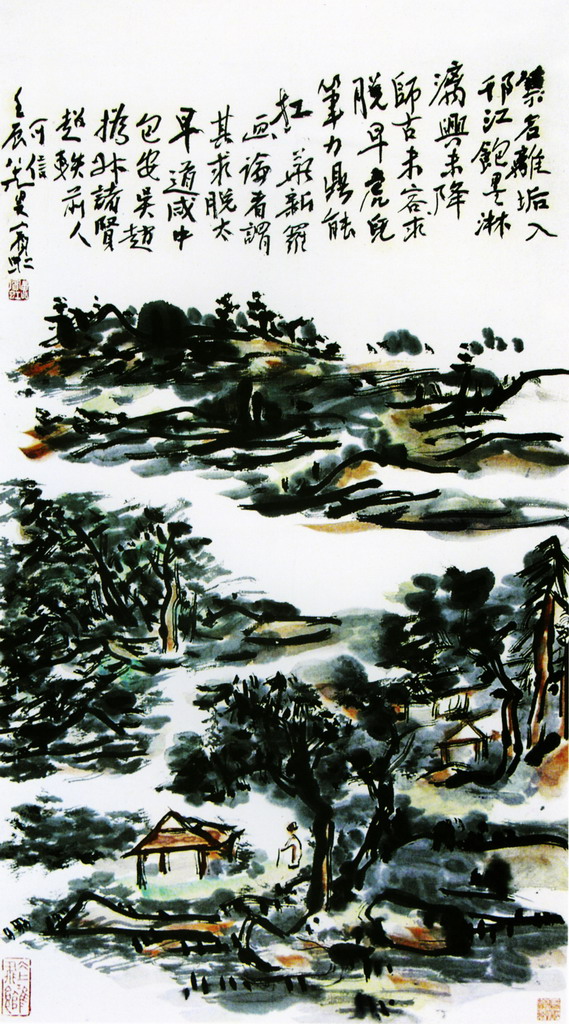 築名離垢入
邗江飽墨淋
漓興未降
師古未容求
脱早虎兒
筆力鼎能
扛 華新羅
画論者謂
其求脱太
早道咸中
包安吳趙
撝叔諸賢
超軼前人
可信
壬辰 叟賓虹